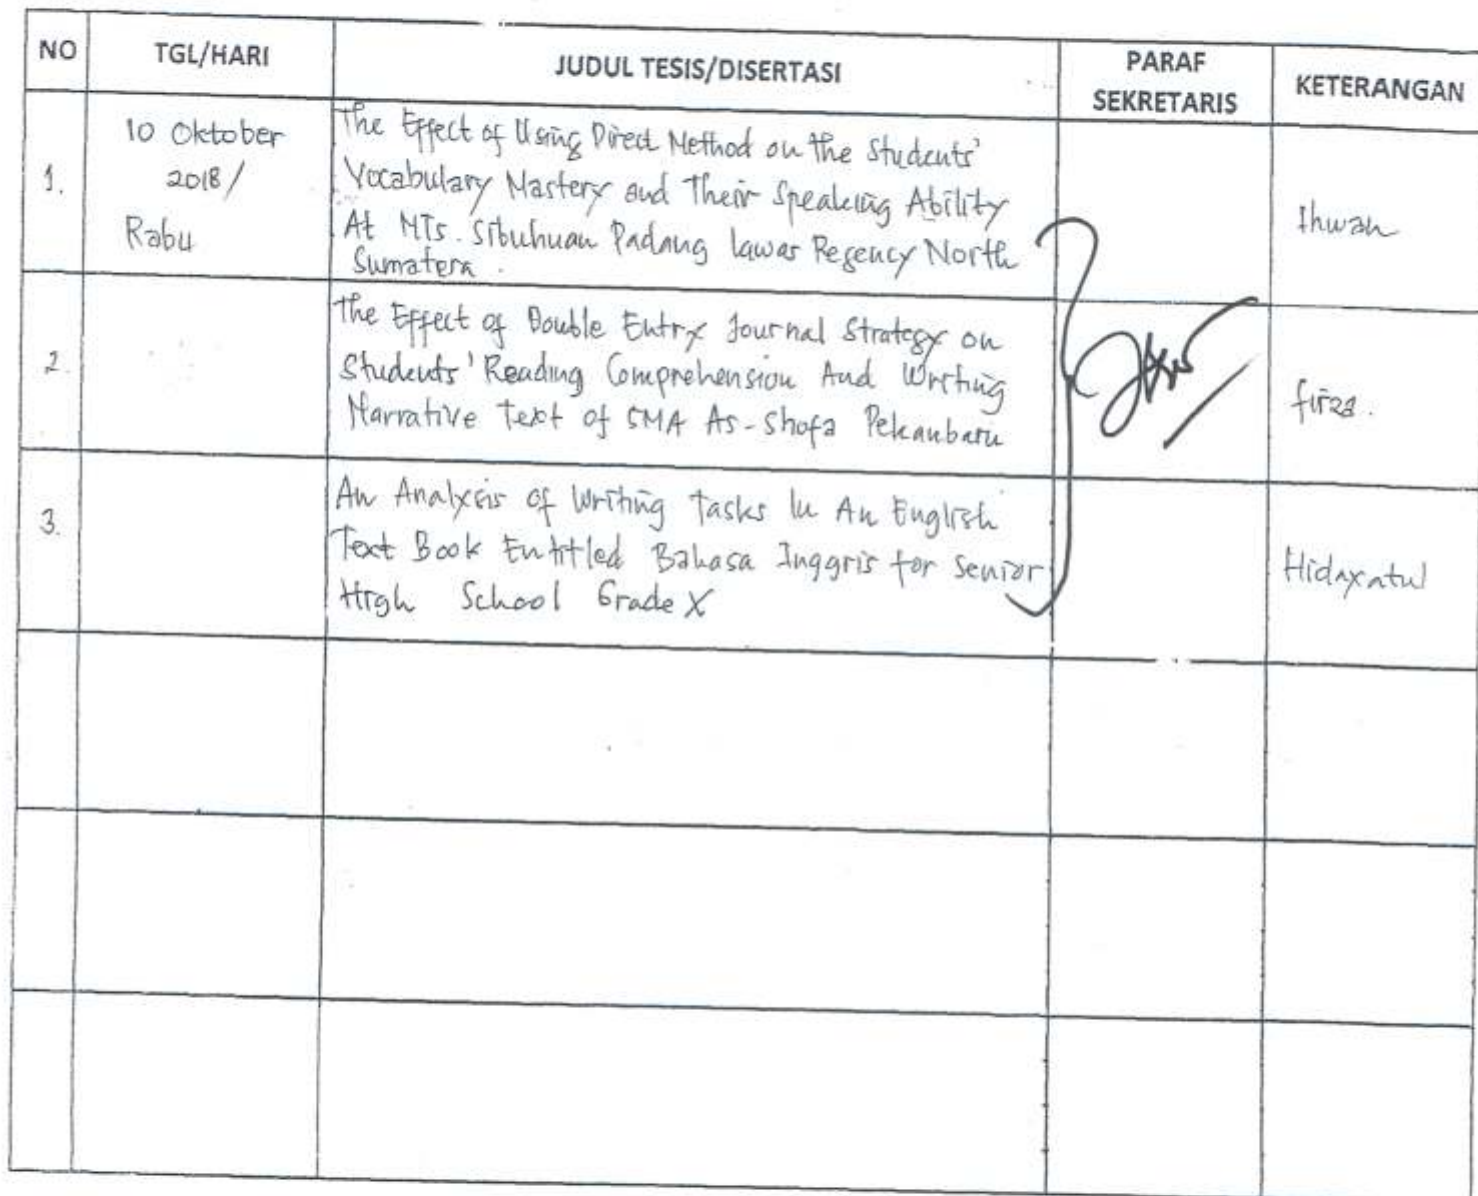 NO TGL/HARI JUDUL TESIS/DISERTASI PARAF SEKRETARIS KETERANGAN
1. 10 Oktober 2018/ Rabu
The Effect of Using Direct Method on the Students'
Vocabulary Mastery and Their Speaking Ability
At MTs. Sibuhuan Padang Lawas Regency North
Sumatera.
Ihwan
2.
The Effect of Double Entry Journal Strategy on
Students' Reading Comprehension And Writing
Narrative Text of SMA As-Shofa Pekanbaru
firza.
3.
An Analysis of Writing Tasks In An English
Text Book Entitled Bahasa Inggris for Senior
High School Grade X
Hidayatul